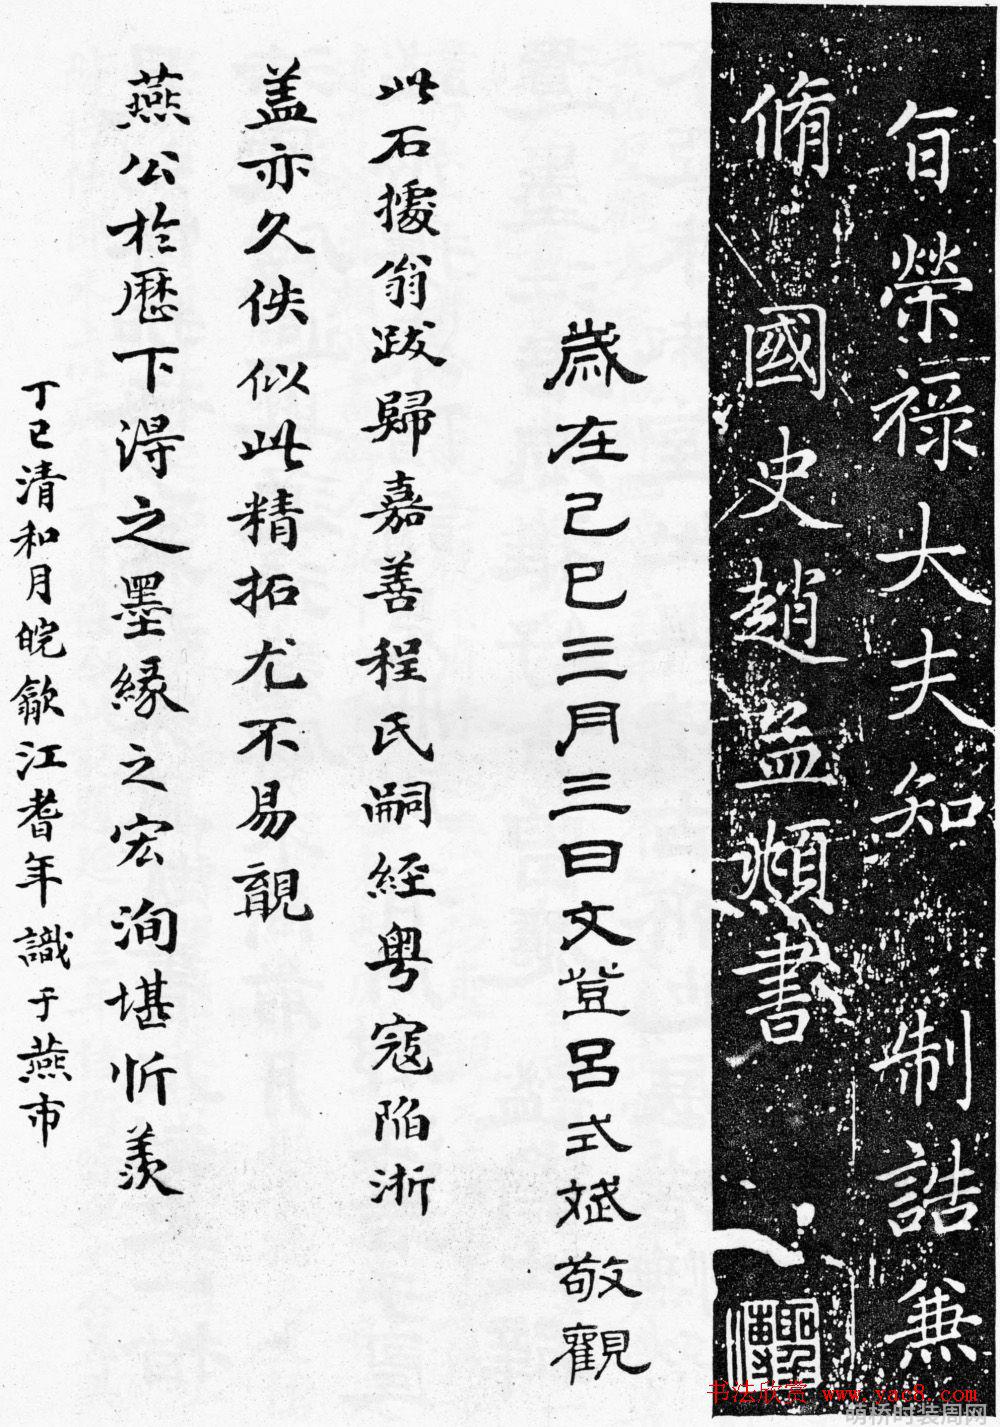 自榮祿大夫知制誥兼
脩國史趙孟頫書
歲在己巳三月三日文登呂式斌敬觀
此石據翁跋歸嘉善程氏嗣經粵寇陷浙
盖亦久佚似此精拓尤不易覯
燕公於歷下淂之墨緣之宏洵堪忻羨
丁巳清和月皖歙江耆年識于燕市
书法欣赏 www.yac8.com
萌桥时装周网